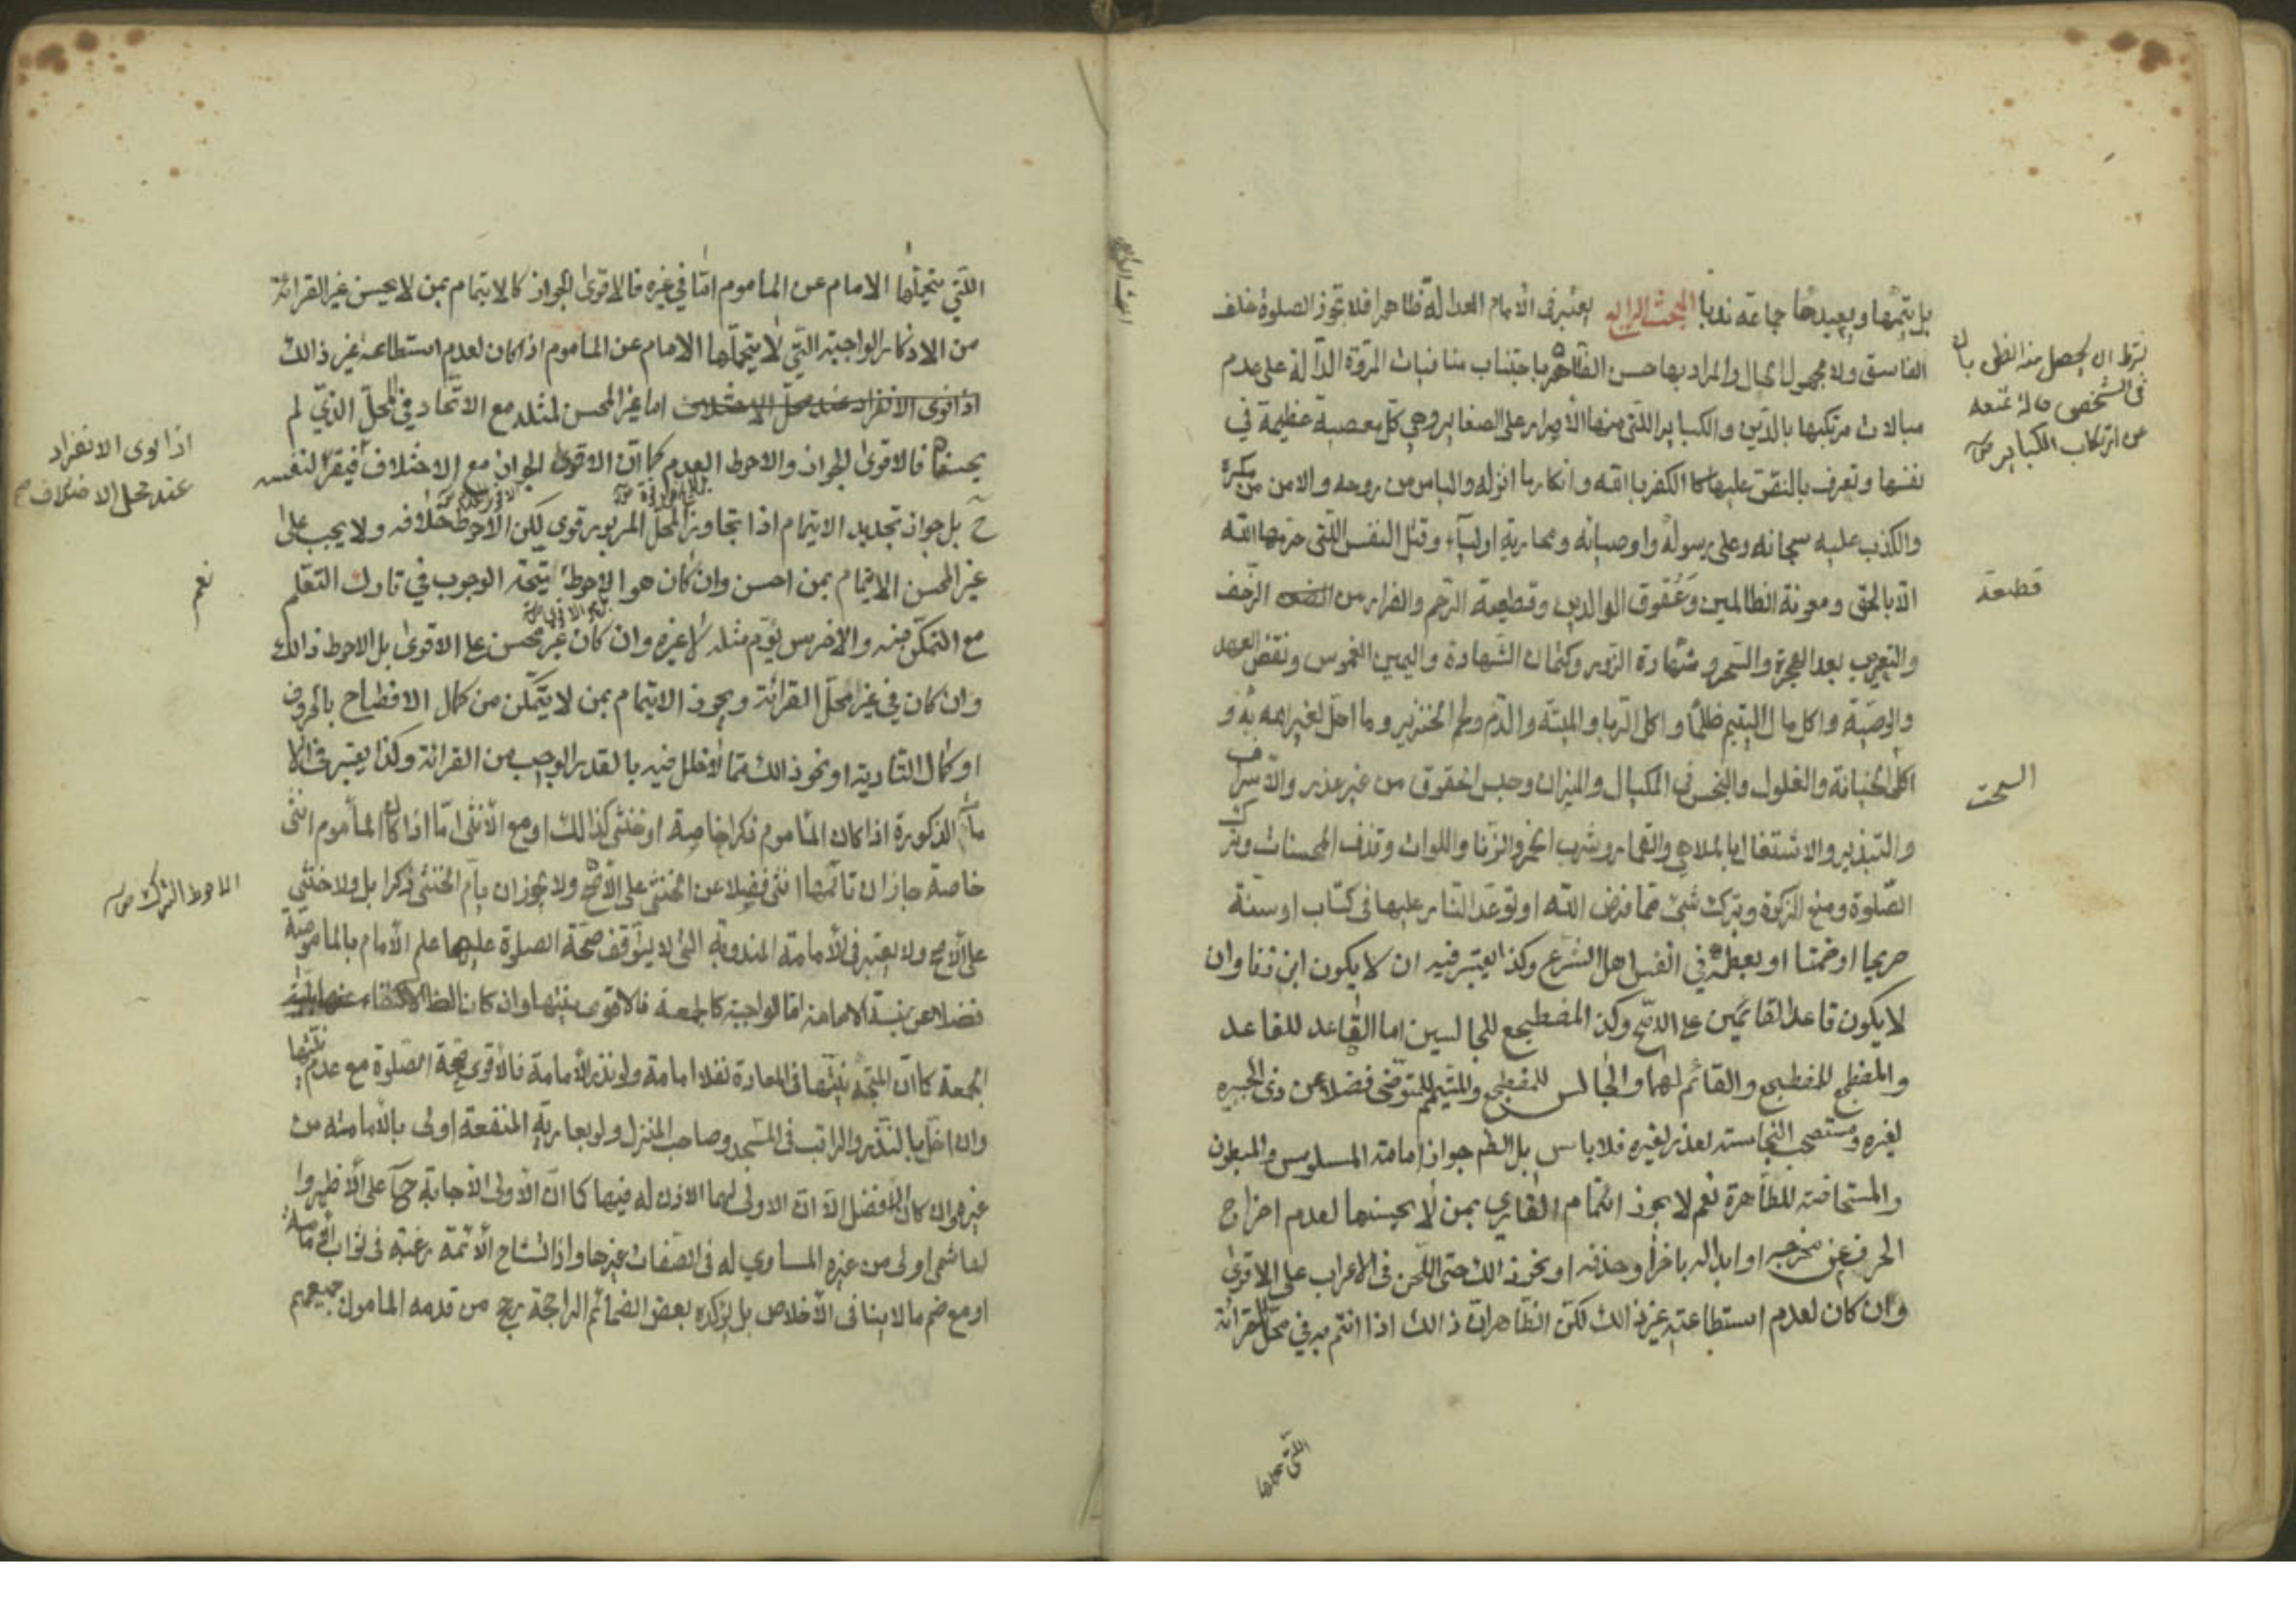 بل يتمها ويعيدها جماعة ندبا البحث الرابع يعتبر في الامام العدالة ظاهرا فلا تجوز الصلوة خلف
الفاسق ولا مجهول الحال والمراد بها حسن الظاهر باجتناب منافيات المروة الدالة على عدم
مبالات مرتكبها بالدين والكباير اللتى منها الاصرار على الصغاير وهي كل معصية عظيمة في
نفسها وتعرف بالنص عليها كالكفر بالله وانكار ما انزله والياس من روحه والامن من مكره
والكذب عليه سبحانه وعلى رسوله واوصيائه ومحاربة اوليآء وقتل النفس اللتى حرمها الله
الا بالحق ومعونة الظالمين وعقوق الوالدين وقطيعة الرحم والفرار من الزحف
والتعرب بعد الهجرة والسحر وشهادة الزور وكتمان الشهادة واليمين الغموس ونقض العهد
والوصية واكل مال اليتيم ظلما واكل الربا والميتة والدم ولحم الخنزير وما اهل لغير الله به و
اكل الخيانة والغلول والبخس في المكيال والميزان وحبس الحقوق من غير عذر والاسراف
والتبذير والاشتغال بالملاهي والقمار وشرب الخمر والزنا واللواث وقذف المحسنات وترك
الصلوة ومنع الزكوة وترك شئ مما فرض الله او توعد النار عليها فى كتاب او سنة
صريحا او ضمنا او بعظمه في انفس اهل الشرع وكذا يعتبر فيه ان لا يكون ابن زنا وان
لا يكون قاعدا لقائمين على الاصح وكذ المضطجع للجالسين اما القاعد للقاعد
والمضطجع للمضطجع والقائم لهما والجالس للمضطجع والمتيمم للمتوضى فضلا عن ذى الجبيره
لغيره ومستصحب النجاسته لعذر لغيره فلا باس بل الظم جواز امامة المسلوس والمبطون
والمستحاضة للطاهرة نعم لا يجوز ائتمام القاري بمن لا يحسنها لعدم اخراج
الحرف عن مخرجه او ابداله باخر او حذفه او نحو ذالك حتى اللحن فى الاعراب على الاقوى
وان كان لعدم استطاعته غير ذالك لكن الظاهر ان ذالك اذا ائتم به في محل القرائة
بشرط ان يحصل منه الظن بان
فى الشخص حالة تمنعه
من ارتكاب الكباير
قطيعة
السحت
اللتي يتحملها
البحث الرابع
اللتي يتحملها الامام عن الماموم اما في غيره فالاقوى الجواز كالايتمام بمن لا يحسن غير القرائة
من الاذكار الواجبة التي لا يتحملها الامام عن الماموم اذا كان لعدم استطاعة غير ذالك
اذا نوى الانفراد عند محل الاختلاف اما غير المحسن لمثله مع الاتحاد في المحل الذي لم
يحسنها فالاقوى الجواز والاحوط العدم كما ان الاقوى الجواز مع الاختلاف فيقرء لنفسه
ح بل جواز تجديد الايتمام اذا تجاوز المحل المزبور قوي لكن الاحوط خلافه ولا يجب على
غير المحسن الايتمام بمن احسن وان كان هو الاحوط يتجه الوجوب في تارك التعلم
مع التمكن منه والاخرس يؤم مثله لا غيره وان كان غير محسن على الاقوى بل الاحوط ذالك
وان كان في غير محل القرائة ويجوز الايتمام بمن لا يتمكن من كمال الافصاح بالحروف
او كمال التادية او نحو ذالك مما لا خلل فيه بالقدر الواجب من القرائة وكذا يعتبر في الا
مام الذكورة اذا كان الماموم ذكرا خاصة او خنثى كذالك او مع الانثى اما اذا كان الماموم انثى
خاصة جاز ان تامها انثى فضلا عن الخنثى على الاصح ولا يجوز ان يام الخنثى ذكرا بل ولا خنثى
على الاصح ولا يعتبر في الامامة المندوبة التى لا يتوقف صحة الصلوة عليها علم الامام بالمامومية
فضلا عن نية الامامة اما الواجبة كالجمعة فالاقوى نيتها وان كان الظ الاكتفاء عنها بنية
الجمعة كما ان المتجه نيتها فى المعادة نفلا امامة ولو نذر الامامة فالاقوى صحة الصلوة مع عدم نيتها
وان اخل بالنذر والراتب فى المسجد وصاحب المنزل ولو بعارية المنفعة اولى بالامامته من
غيرهم وان كان الافضل الا ان الاولى لهما الاذن له فيها كما ان الاولى الاجابة ح على الاظهر وا
لهاشمى اولى من غيره المساوي له فى الصفات غيرها واذا تشاح الائمة رغبة فى ثواب الامامة
او مع ضم ما لا ينافى الاخلاص بل يؤكده بعض الضمائم الراجحة رجح من قدمه المامون جميعهم
اذا نوى الانفراد
عند محل الاختلاف صح
نعم
الاحوط الترك